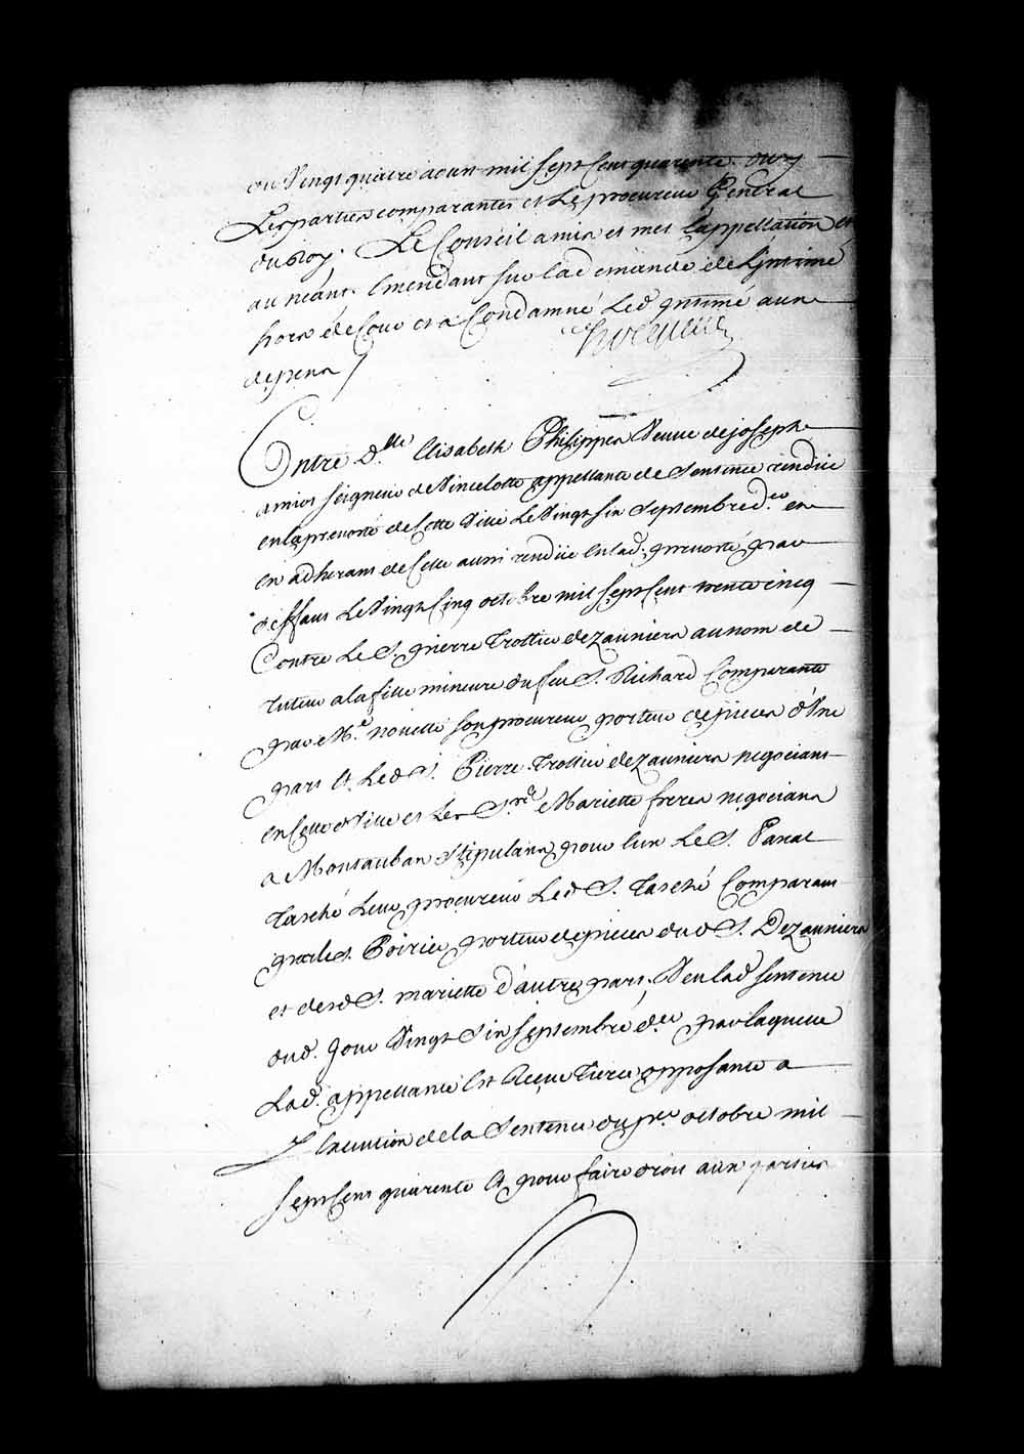 du Vingt quatre aoust mil sept Cent quarente. ouy
Les parties comparantes et Le procureur General
du Roy. Le Conseil a mis et met l'appellation et
au neant. Emendant sur lad. demande de L'intimé
hors de Cour et a Condamné Led. intimé aux
depens
hocquart
Entre D.lle Elisabeth Philippes Veuve de joseph
amiot seigneur de Vincelotte appellante de Sentence rendüe
en la prevosté de Cette Ville Le Vingt six Septembre d.er en
en adherant de Celle aussi rendüe en lad. prevosté par
deffaut Le Vingt Cinq octobre mil sept Cent trente cinq
Contre Le S. pierre Trottier dezauniers au nom de
tuteur a la fille mineure du feu S. Richard Comparante
par M.e nouette son procureur porteur de pieces d'Une
part Et Led. S. Pierre Trottier dezauniers negociant
en Cette Ville et Les S.rs Mariette freres negocians
a Montauban Stipulant pour eux Le S. Pascal
Tasché Leur procureur Led. S. Tasché Comparant
par le S. Poirier porteur de pieces dud. S. Dezauniers
et desd. S. mariette d'autre part; Veu lad. sentence
dud. Jour Vingt Six septembre d.er par laquelle
Lad. appellante Est Reçue Tierce opposante a
L'execution de la Sentence du p.er octobre mil
sept Cent quarente Et pour faire droit aux parties